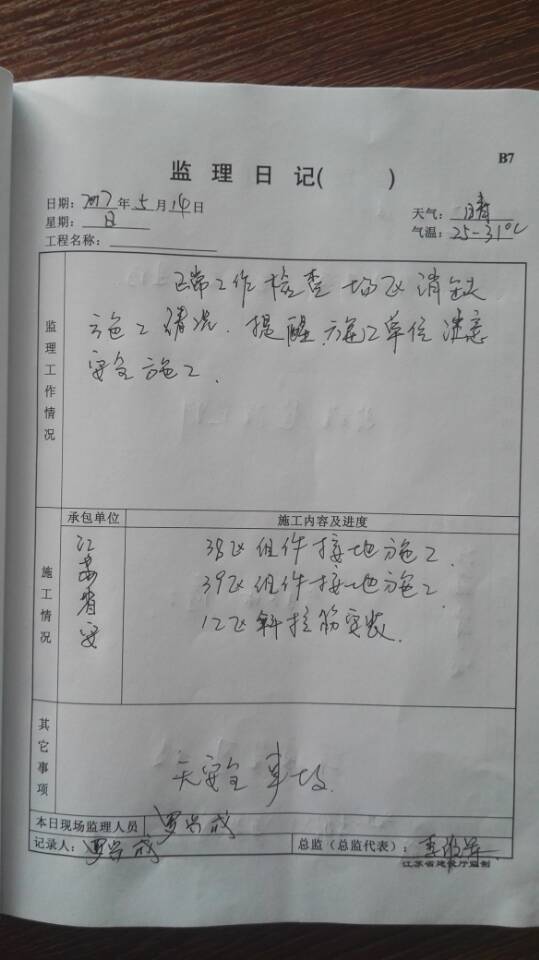 B7
监 理 日 记( )
日期：2017年5月14日
天气：晴
星期：日
气温：25-31℃
工程名称：
监理工作情况
正常工作检查场区消缺
施工情况．提醒施工单位注意
安全施工．
承包单位
施工内容及进度
施工情况
江苏省安
38区组件接地施工．
39区组件接地施工．
12区斜拉筋安装．
其它事项
无安全事故．
本日现场监理人员
罗兴成
记录人：罗兴成
总监（总监代表）：李
江苏省建设厅监制